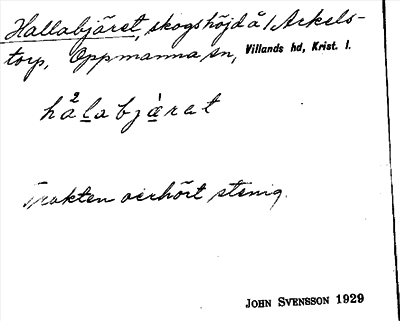 Hallabjäret, skogshöjd å 1 Arkels-
torp, Oppmanna sn, Villands hd, Krist. l.
ha²labjàrat
Trakten oerhört stenig.
JOHN SVENSSON 1929